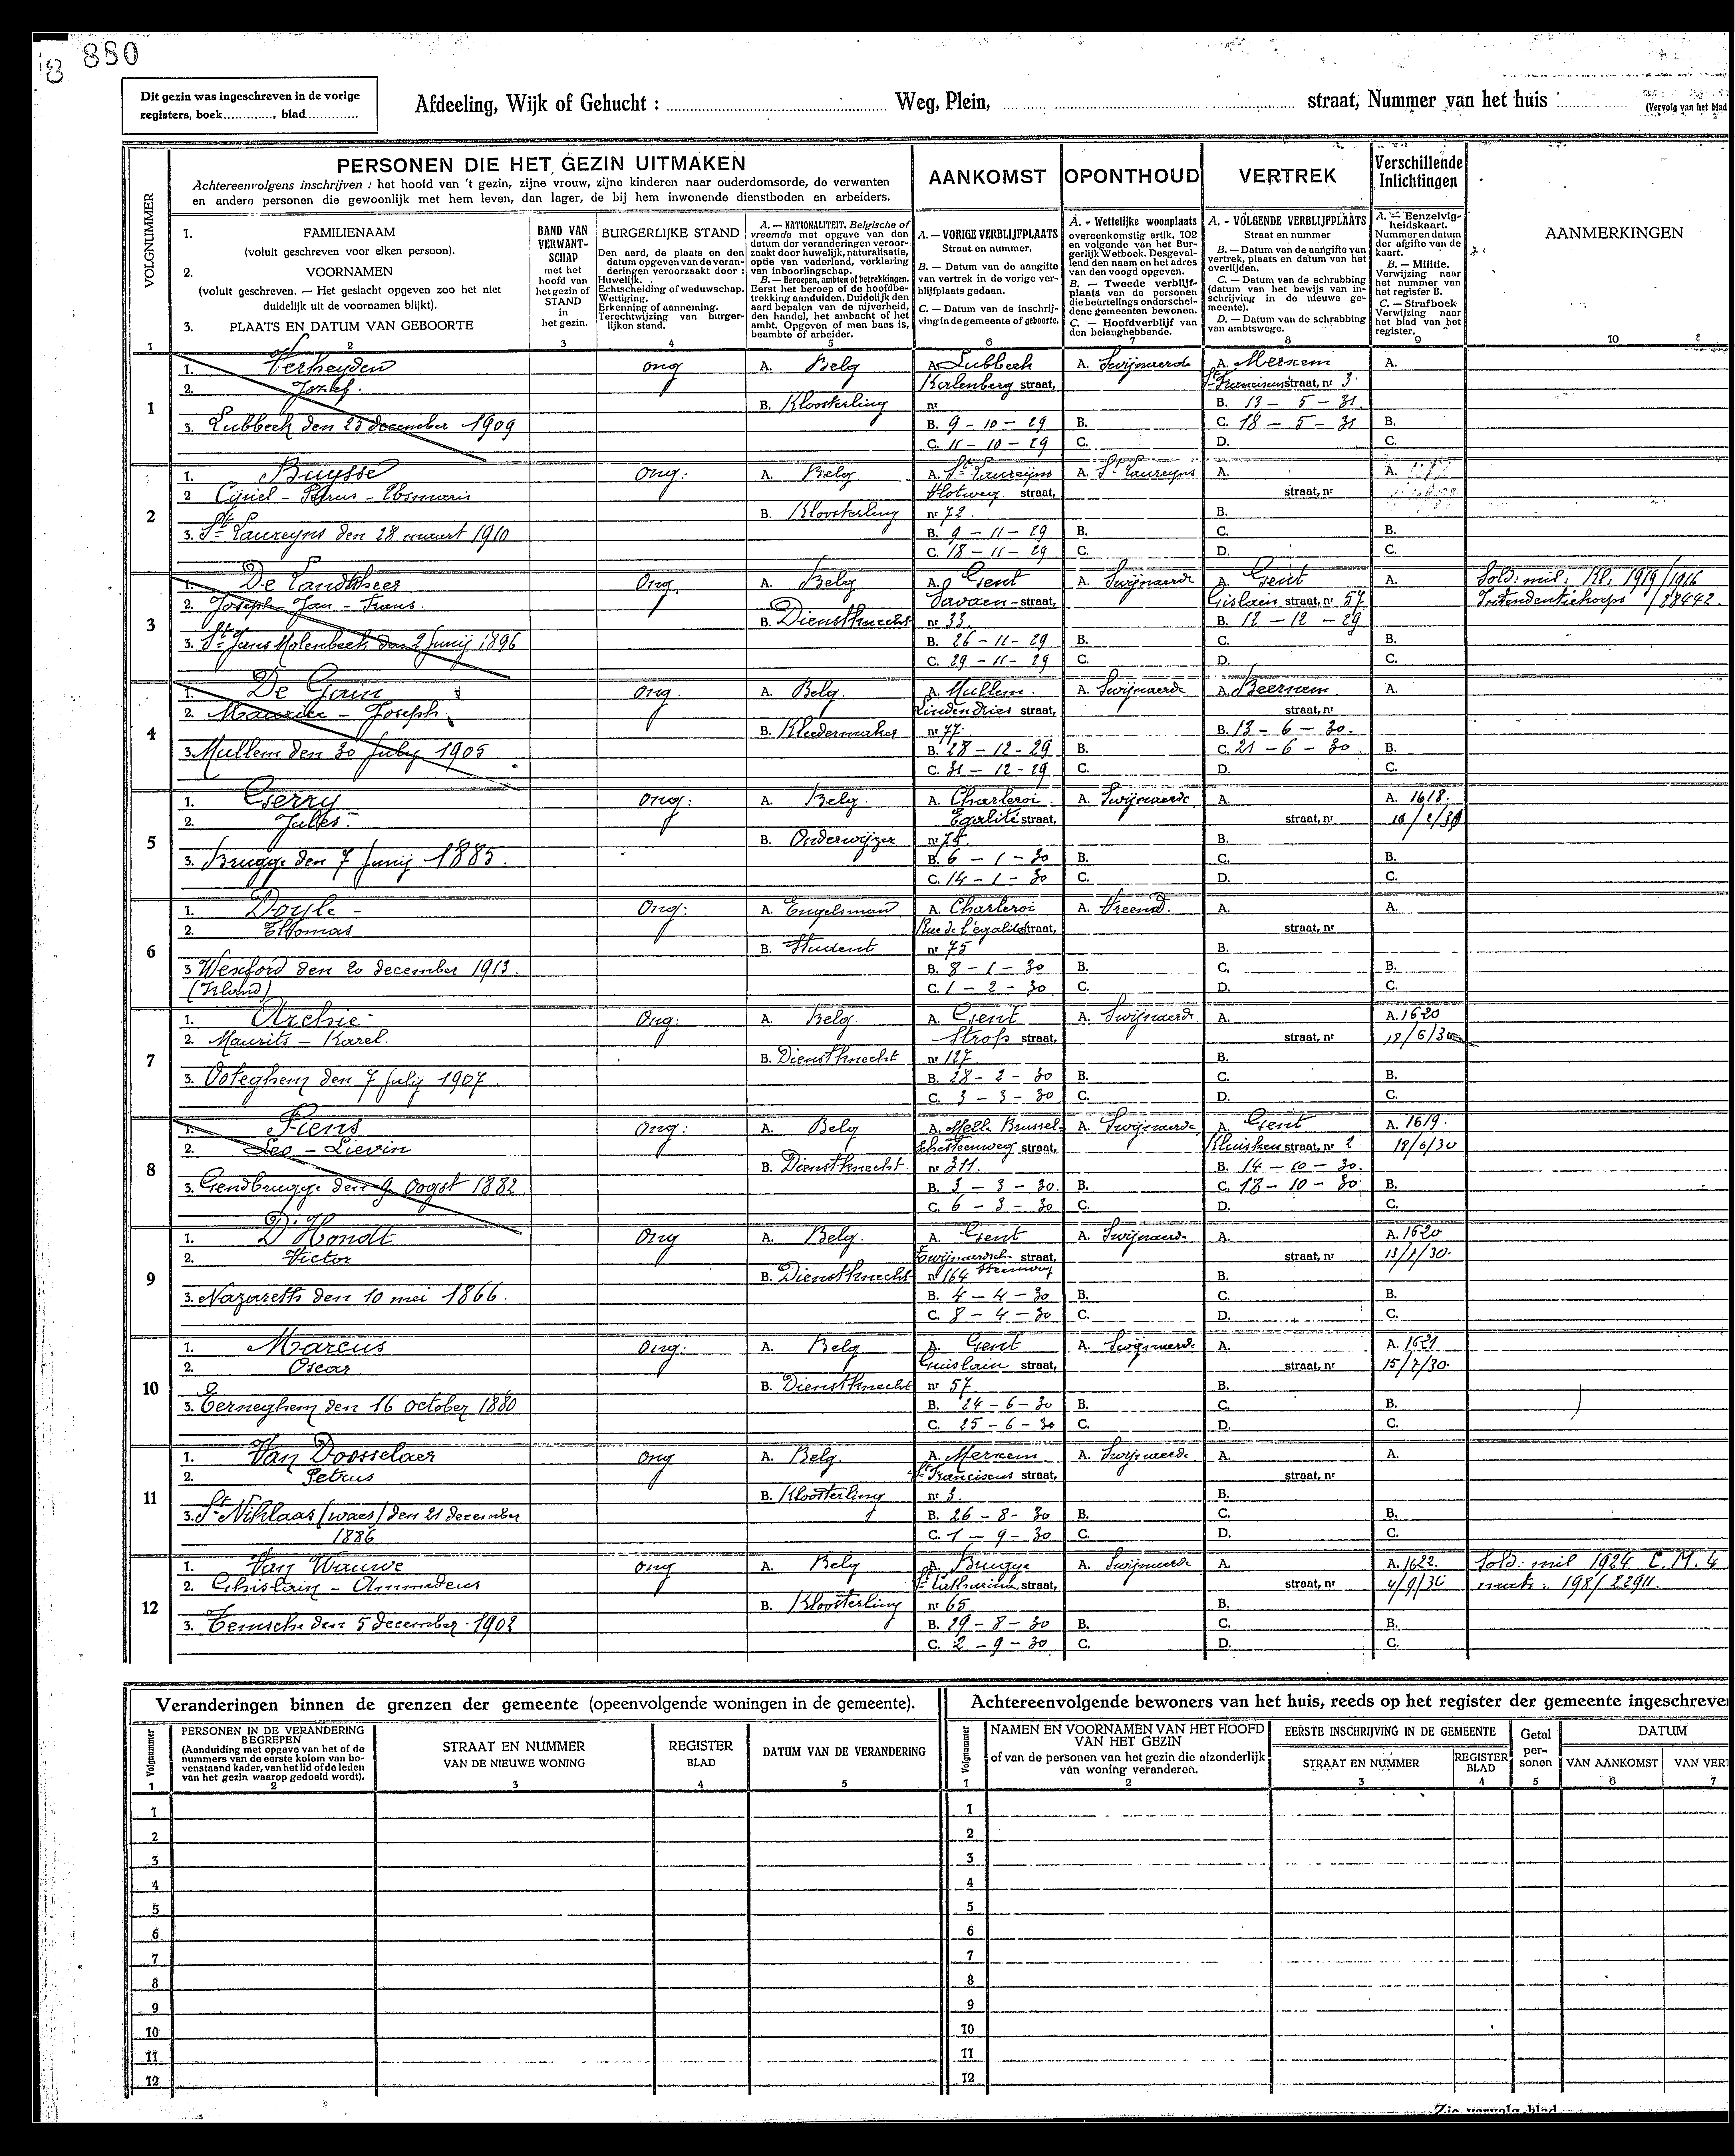 880
Dit gezin was ingeschreven in de vorige
registers, boek............, blad.............
Afdeeling, Wijk of Gehucht : ........ Weg, Plein, ........ straat, Nummer van het huis ........ (Vervolg van het blad
VOLGNUMMER
PERSONEN DIE HET GEZIN UITMAKEN
Achtereenvolgens inschrijven : het hoofd van 't gezin, zijne vrouw, zijne kinderen naar ouderdomsorde, de verwanten
en andere personen die gewoonlijk met hem leven, dan lager, de bij hem inwonende dienstboden en arbeiders.
AANKOMST
OPONTHOUD
VERTREK
Verschillende
Inlichtingen
AANMERKINGEN
1. FAMILIENAAM
(voluit geschreven voor elken persoon).
2. VOORNAMEN
(voluit geschreven. — Het geslacht opgeven zoo het niet
duidelijk uit de voornamen blijkt).
3. PLAATS EN DATUM VAN GEBOORTE
BAND VAN
VERWANT-
SCHAP
met het
hoofd van
het gezin of
STAND
in
het gezin.
BURGERLIJKE STAND
Den aard, de plaats en den
datum opgeven van de veran-
deringen veroorzaakt door :
Huwelijk.
Echtscheiding of weduwschap.
Wettiging.
Erkenning of aanneming.
Terechtwijzing van burger-
lijken stand.
A. — NATIONALITEIT. Belgische of
vreemde met opgave van den
datum der veranderingen veroor-
zaakt door huwelijk, naturalisatie,
optie van vaderland, verklaring
van inboorlingschap.
B. — Beroepen, ambten of betrekkingen.
Eerst het beroep of de hoofdbe-
trekking aanduiden. Duidelijk den
aard bepalen van de nijverheid,
den handel, het ambacht of het
ambt. Opgeven of men baas is,
beambte of arbeider.
A. — VORIGE VERBLIJFPLAATS
Straat en nummer.
B. — Datum van de aangifte
van vertrek in de vorige ver-
blijfplaats gedaan.
C. — Datum van de inschrij-
ving in de gemeente of geboorte.
A. - Wettelijke woonplaats
overeenkomstig artik. 102
en volgende van het Bur-
gerlijk Wetboek. Desgeval-
lend den naam en het adres
van den voogd opgeven.
B. — Tweede verblijf-
plaats van de personen
die beurtelings onderschei-
dene gemeenten bewonen.
C. — Hoofdverblijf van
den belanghebbende.
A. - VOLGENDE VERBLIJFPLAATS
Straat en nummer
B. — Datum van de aangifte van
vertrek, plaats en datum van het
overlijden.
C. — Datum van de schrabbing
(datum van het bewijs van in-
schrijving in de nieuwe ge-
meente).
D. — Datum van de schrabbing
van ambtswege.
A. — Eenzelvig-
heidskaart.
Nummer en datum
der afgifte van de
kaart.
B. — Militie.
Verwijzing naar
het nummer van
het register B.
C. — Strafboek
Verwijzing naar
het blad van het
register.
1 2 3 4 5 6 7 8 9 10
1
1. Verheyden ong A. Belg A. Lubbeek A. Swijnaerde A. Mernem A.
2. Jozef. straat, St Franciscus straat, nr 3.
B. Kloosterling nr B. 13 - 5 - 31.
3. Lubbeek den 25 december 1909 B. 9 - 10 - 29 B. C. 18 - 5 - 31 B.
C. 11 - 10 - 29 C. D. C.
2
1. Buysse ong: A. Belg A. St Laureijns A. St Laureyns A. A.
2 straat, straat, nr
B. Kloosterling nr 72. B.
3. St Laureyns den 28 maart 1910 B. 9 - 11 - 29 B. C. B.
C. 18 - 11 - 29 C. D. C.
3
1. De Landtsheer Ong. A. Belg A. Gent A. Swijnaerde A. Gent A. Sold: mil: Kl. 1919/1916
2. Joseph - Jan - Frans. Savaen - straat, Gislain straat, nr 57 Intendentiekorps /28442.
B. Dienstknecht nr 33. B. 12 - 12 - 29
3. St Jans Molenbeek den 2 Junij 1896 B. 26 - 11 - 29 B. C. B.
C. 29 - 11 - 29 C. D. C.
4
1. De Gain Ong. A. Belg. A. Mullem. A. Swijnaerde A. Beernem A.
2. Maurike - Joseph. Linden Dries straat, straat, nr
B. Kleedermaker nr 77. B. 13 - 6 - 30.
3. Mullem den 30 July 1905 B. 28 - 12 - 29 B. C. 21 - 6 - 30 B.
C. 31 - 12 - 29 C. D. C.
5
1. Gerry ong: A. Belg. A. Charleroi. A. Swijnaerde A. A. 1618.
2. Jules - Egalité straat, straat, nr
B. Onderwijzer nr 75. B.
3. Brugge den 7 Junij 1885. B. 6 - 1 - 30 B. C. B.
C. 14 - 1 - 30 C. D. C.
6
1. Doyle - Ong: A. Engelsman A. Charleroi A. Vreemd. A. A.
2. Thomas Rue de l'égalité straat, straat, nr
B. Student nr 75 B.
3 Wexford den 20 december 1913. B. 8 - 1 - 30 B. C. B.
(Irland) C. 1 - 2 - 30 C. D. C.
7
1. Archie - Ong: A. Belg. A. Gent A. Swijnaerde A. A. 1620
2. Maurits - Karel. Strop straat, straat, nr 18/6/30
B. Dienstknecht nr 127 B.
3. Ooteghem den 7 Julij 1907. B. 28 - 2 - 30 B. C. B.
C. 3 - 3 - 30 C. D. C.
8
1. Fiens Ong: A. Belg A. Melle Brussel- A. Swijnaerde A. Gent A. 1619.
2. Leo - Lievin schesteenweg straat, Kluisken straat, nr 2 18/6/30
B. Dienstknecht. nr 311. B. 14 - 10 - 30.
3. Gendbrugge den 9 Oogst 1882 B. 3 - 3 - 30. B. C. 18 - 10 - 30 B.
C. 6 - 3 - 30 C. D. C.
9
1. D'Hondt Ong A. Belg. A. Gent A. Swijnaerde A. A. 1620
2. Victor Zwijnaardsche straat, straat, nr
B. Dienstknecht nr 164 Steenweg B.
3. Nazareth den 10 mei 1866. B. 4 - 4 - 30 B. C. B.
C. 8 - 4 - 30 C. D. C.
10
1. Marcus Ong. A. Belg A. Gent A. Swijnaerde A. A. 1621
2. Oscar Guislain straat, straat, nr 15/7/30.
B. Dienstknecht nr 57 B.
3. Eerneghem den 16 October 1880 B. 24 - 6 - 30 B. C. B.
C. 25 - 6 - 30 C. D. C.
11
1. Van Dosselaer ong A. Belg. A. Mernem A. Swijnaerde A. A.
2. Petrus St Franciscus straat, straat, nr
B. Kloosterling nr 3. B.
3. St Niklaas (waes) den 21 december B. 26 - 8 - 30 B. C. B.
1886 C. 1 - 9 - 30 C. D. C.
12
1. Van Wauwe ong A. Belg A. Brugge A. Swijnaerde A. A. 1622. Sold: mil 1924 C.M. 4
2. Ghislain - Ammadeus St Catharina straat, straat, nr 4/9/30 198/22911.
B. Kloosterling nr 65 B.
3. Temsche den 5 december 1902 B. 29 - 8 - 30 B. C. B.
C. 2 - 9 - 30 C. D. C.
Veranderingen binnen de grenzen der gemeente (opeenvolgende woningen in de gemeente).
Volgnummer
PERSONEN IN DE VERANDERING
BEGREPEN
(Aanduiding met opgave van het of de
nummers van de eerste kolom van bo-
venstaand kader, van het lid of de leden
van het gezin waarop gedoeld wordt).
STRAAT EN NUMMER
VAN DE NIEUWE WONING
REGISTER
BLAD
DATUM VAN DE VERANDERING
1 2 3 4 5
1
2
3
4
5
6
7
8
9
10
11
12
Achtereenvolgende bewoners van het huis, reeds op het register der gemeente ingeschreve
Volgnummer
NAMEN EN VOORNAMEN VAN HET HOOFD
VAN HET GEZIN
of van de personen van het gezin die afzonderlijk
van woning veranderen.
EERSTE INSCHRIJVING IN DE GEMEENTE
STRAAT EN NUMMER
REGISTER
BLAD
Getal
per-
sonen
DATUM
VAN AANKOMST VAN VER
1 2 3 4 5 6 7
1
2
3
4
5
6
7
8
9
10
11
12
Zie vervolg blad